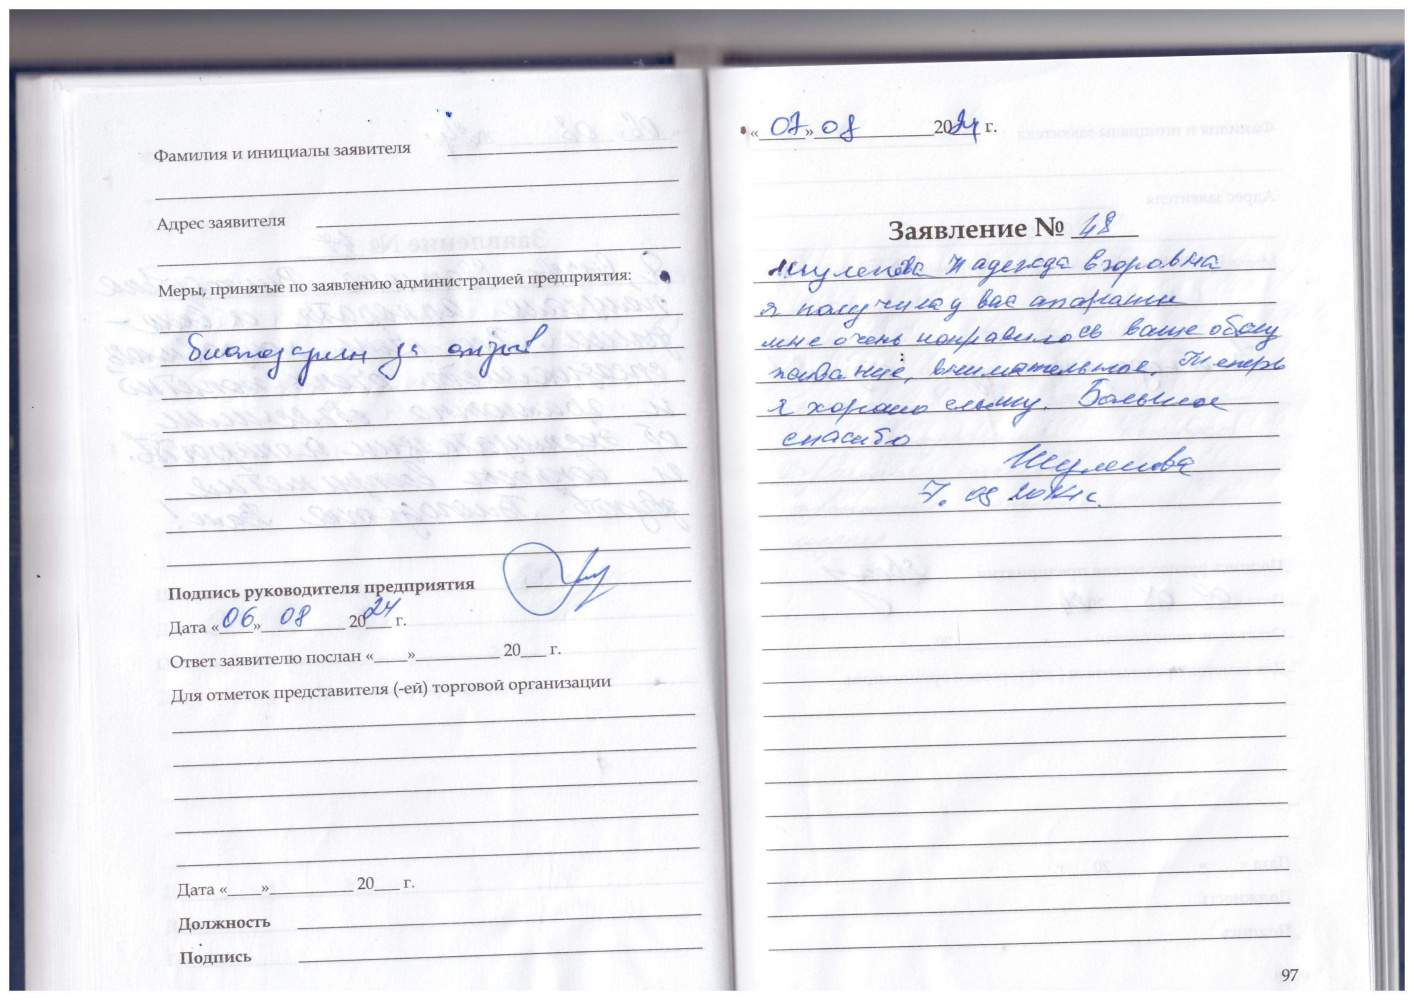 Фамилия и инициалы заявителя
Адрес заявителя
Меры, принятые по заявлению администрацией предприятия:
благодарим за отзыв
Подпись руководителя предприятия
Дата «06» 08 2024 г.
Ответ заявителю послан «____»__________ 20___ г.
Для отметок представителя (-ей) торговой организации
Дата «____»__________ 20___ г.
Должность
Подпись
«07» 08 2024 г.
Заявление № 48
Надежда
я получила у вас апараты
мне очень понравилось ваше обслу
, внимательное. Теперь
я хорошо слышу. Большое
спасибо
7. 08 2024 г.
97